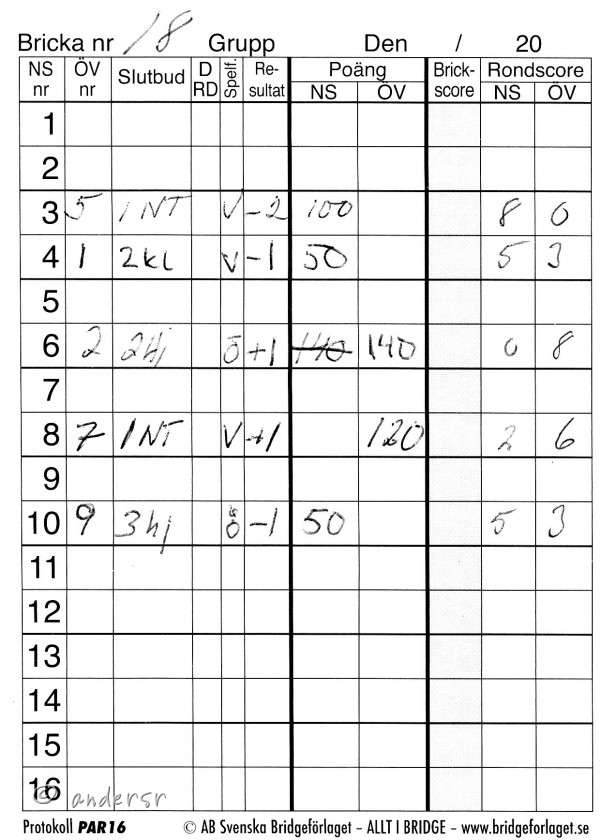 Bricka nr 18 Grupp Den / 20
NS nr ÖV nr Slutbud D RD Spelf. Re- sultat Poäng NS ÖV Brick- score Rondscore NS ÖV
1
2
3 5 1 NT V -2 100 8 0
4 1 2kl V -1 50 5 3
5
6 2 2hj ö +1 140 140 0 8
7
8 7 1 NT V +1 120 2 6
9
10 9 3hj ö -1 50 5 3
11
12
13
14
15
16
© andersr
Protokoll PAR16 © AB Svenska Bridgeförlaget – ALLT I BRIDGE – www.bridgeforlaget.se